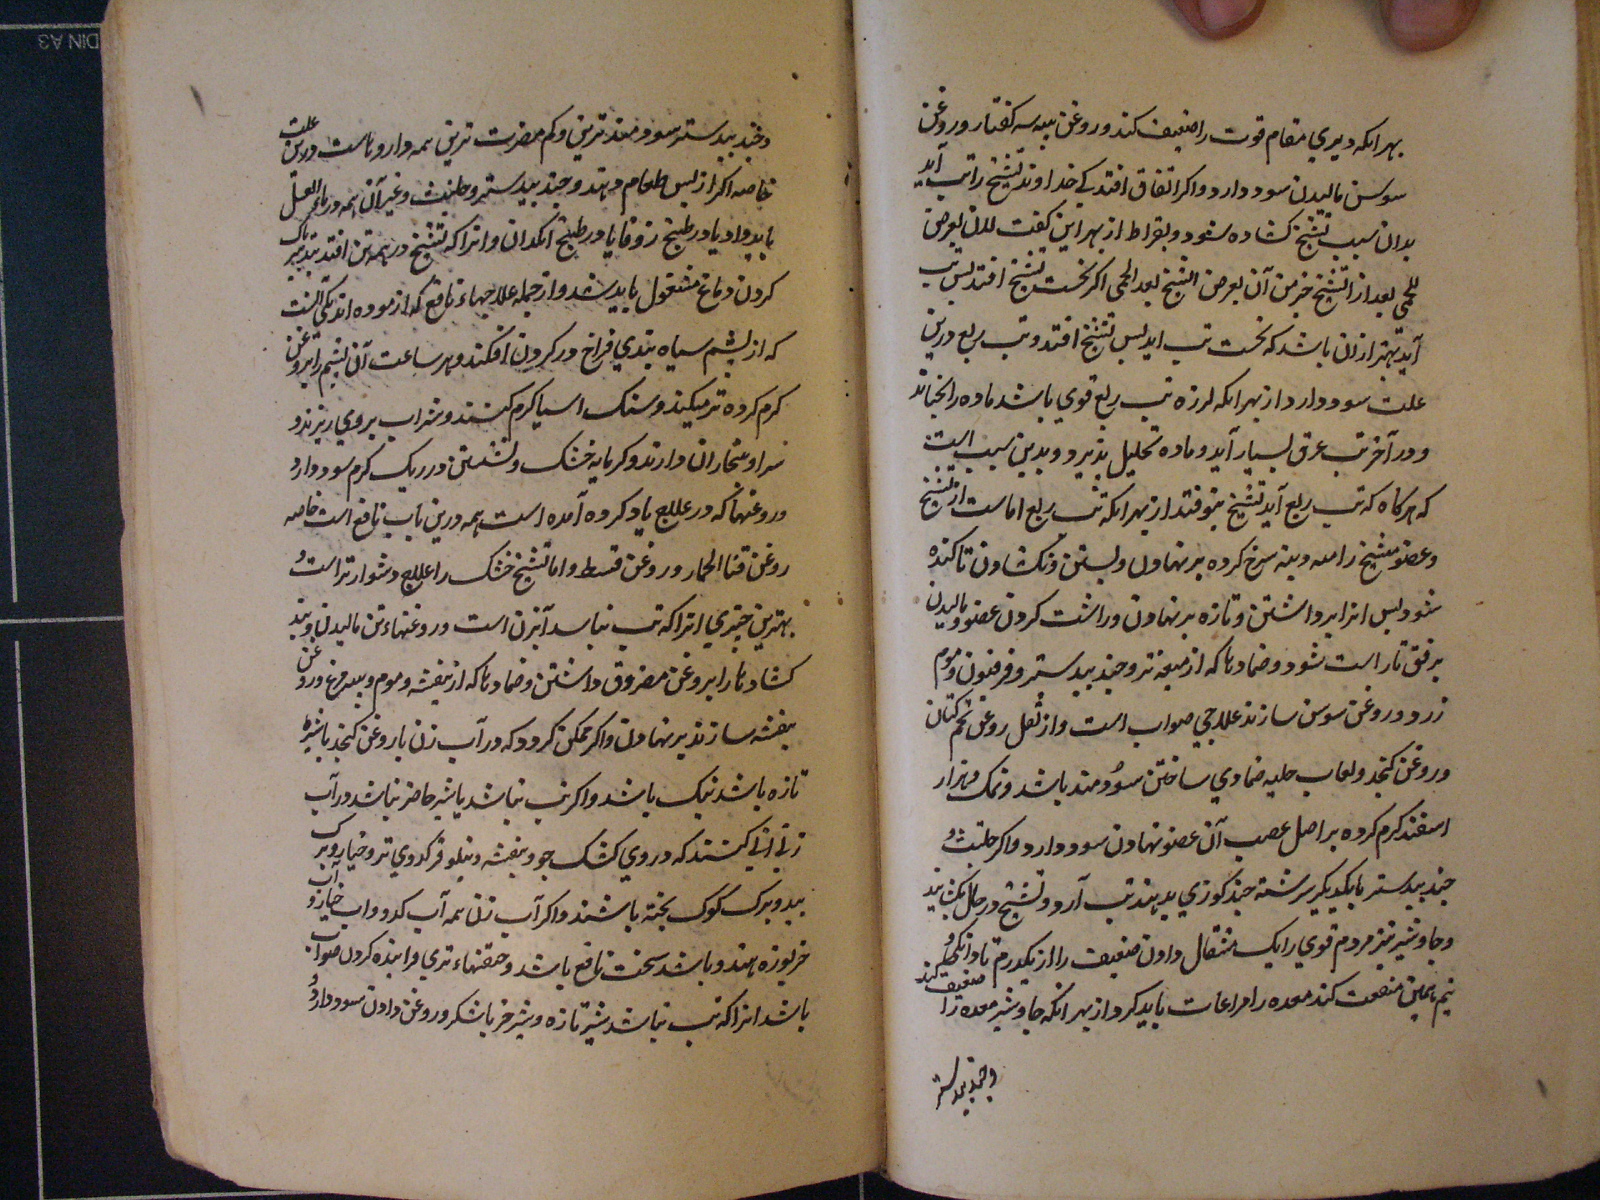 بهر انکه دیری مقام قوت را ضعیف کند و روغن پیه کفتار و روغن
سوسن مالیدن سود دارد و اکر اتفاق افتد کی خداوند تشنج را تب آید
بدان سبب تشنج کشاده شود و بقراط از بهر این کفت لان یعرض
الحمی بعد از التشنج خیر من آن یعرض التشنج بعد الحمی اکر نخست تشنج افتد پس تب
آید بهتر ازان باشد که نخست تب اید پس تشنج افتد و تب ربع درین
علت سود دارد از بهر انکه لرزه تب ربع قوی باشد ماده را بجنباند
و در آخر تب عرق بسیار آید و ماده تحلیل پذیرد و بدین سبب است
که هرکاه که تب ربع آید تشنج بیوفتد از بهر انکه تب ربع امانست از تشنج
و عضو متشنج را سرخ کرده بر نهادن و بستن و نکشادن تا کنده
شود پس انرا برداشتن و تازه بر نهادن و راست کردن عضو و مالیدن
برفق تا راست شود و ضمادها که از میعه تر و جند بیدستر و فرفیون و موم
زرد و روغن سوسن سازند علاجی صواب است و از ثفل روغن تخم کتان
و روغن کنجد و لعاب حلبه ضمادی ساختن سودمند باشد و نمک و هزار
اسفند کرم کرده بر اصل عصب آن عضو نهادن سود دارد و اکر حلتیث و
جند بیدستر با یکدیکر سرشته چند کوزی بدهند تب آرد و تشنج در حال بکشاید
و جاوشیر نیز مردم قوی را یک مثقال دادن ضعیف را از یکدرم تا دانکی و
نیم همین منفعت کند معده را مراعات باید کرد از بهر انکه جاوشیر معده را ضعیف کند
و جند بیدستر
و جند بیدستر سودمندترین و کم مضرت ترین همه داروهاست درین علت
خاصه اکر از پس طعام دهند و جند بیدستر و حلتیث و غیر آن همه در ماء العسل
باید داد یا در طبیخ زوفا یا در طبیخ انکدان و انرا که تشنج در همه تن افتد بتدبیر پاک
کردن دماغ مشغول باید شد و از جمله علاجهاء نافع که ازموده اند یکی انست
که از پشم سیاه بندی فراخ در کردن افکند و هر ساعت آن پشم را بروغن
کرم کرده تر میکنند و سنک اسیا کرم کنند و شراب بروی ریزند و
سر او بخار آن دارند و کرمابه خشک و نشستن در ریک کرم سود دارد
و روغنها که در علاج یاد کرده آمده است همه درین باب نافع است خاصه
روغن قثا الحمار و روغن قسط و اما تشنج خشک را علاج دشوارتر است و
بهترین چیزی انرا که تب نباشد آبزن است و روغنهاء تن مالیدن و بند
کشادها را بروغن مضروق داشتن و ضمادها که از بنفشه و موم و پیه مرغ و روغن
بنفشه سازند بر نهادن و اکر ممکن کردد که در آب زن با روغن کنجد یا شیره
تازه باشد نیک باشد و اکر تب نباشد یا شیر حاضر نباشد در آب
زن آبی کنند که در وی کشک جو و بنفشه و نیلوفر کدوی تر و خیار و برک
بید و برک کوک پخته باشند و اکر آب زن همه آب کدو و اب خیار و آب
خربوزه هندو باشد سخت نافع باشد و حقنهاء تری فزاینده کردن صواب
باشد انرا که تب نباشد شیر تازه و شیر خر با شکر و روغن دادن سود دارد و